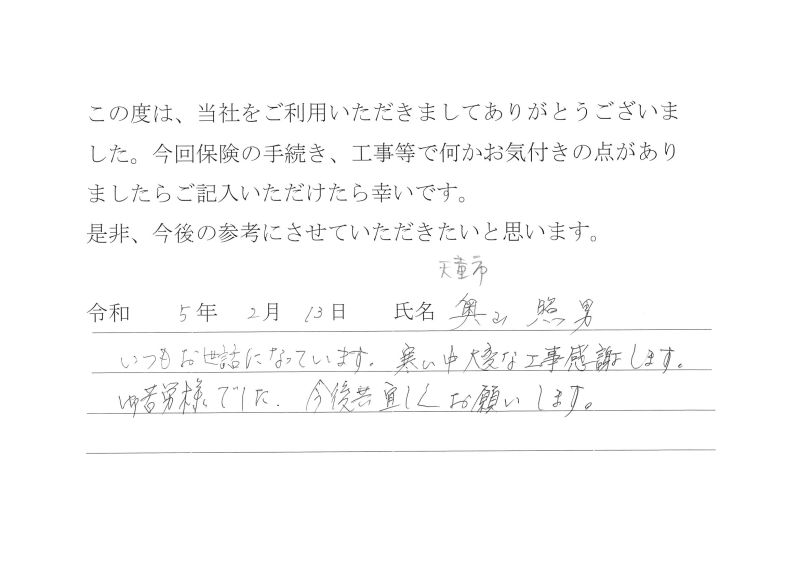 この度は、当社をご利用いただきましてありがとうございま
した。今回保険の手続き、工事等で何かお気付きの点があり
ましたらご記入いただけたら幸いです。
是非、今後の参考にさせていただきたいと思います。
天童市
令和 5年 2月 13日 氏名 奥山 照男
いつもお世話になっています。寒い中大変な工事感謝します。
御苦労様でした。今後共宜しくお願いします。